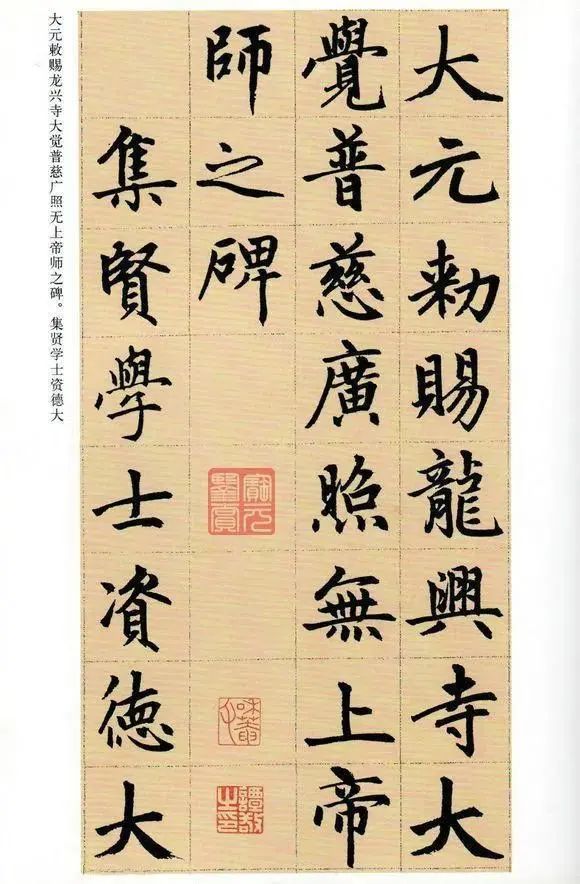 大元勅賜龍興寺大
覺普慈廣照無上帝
師之碑
集賢學士資德大
譚敬之印
大元敕赐龙兴寺大觉普慈广照无上帝师之碑。集贤学士资德大